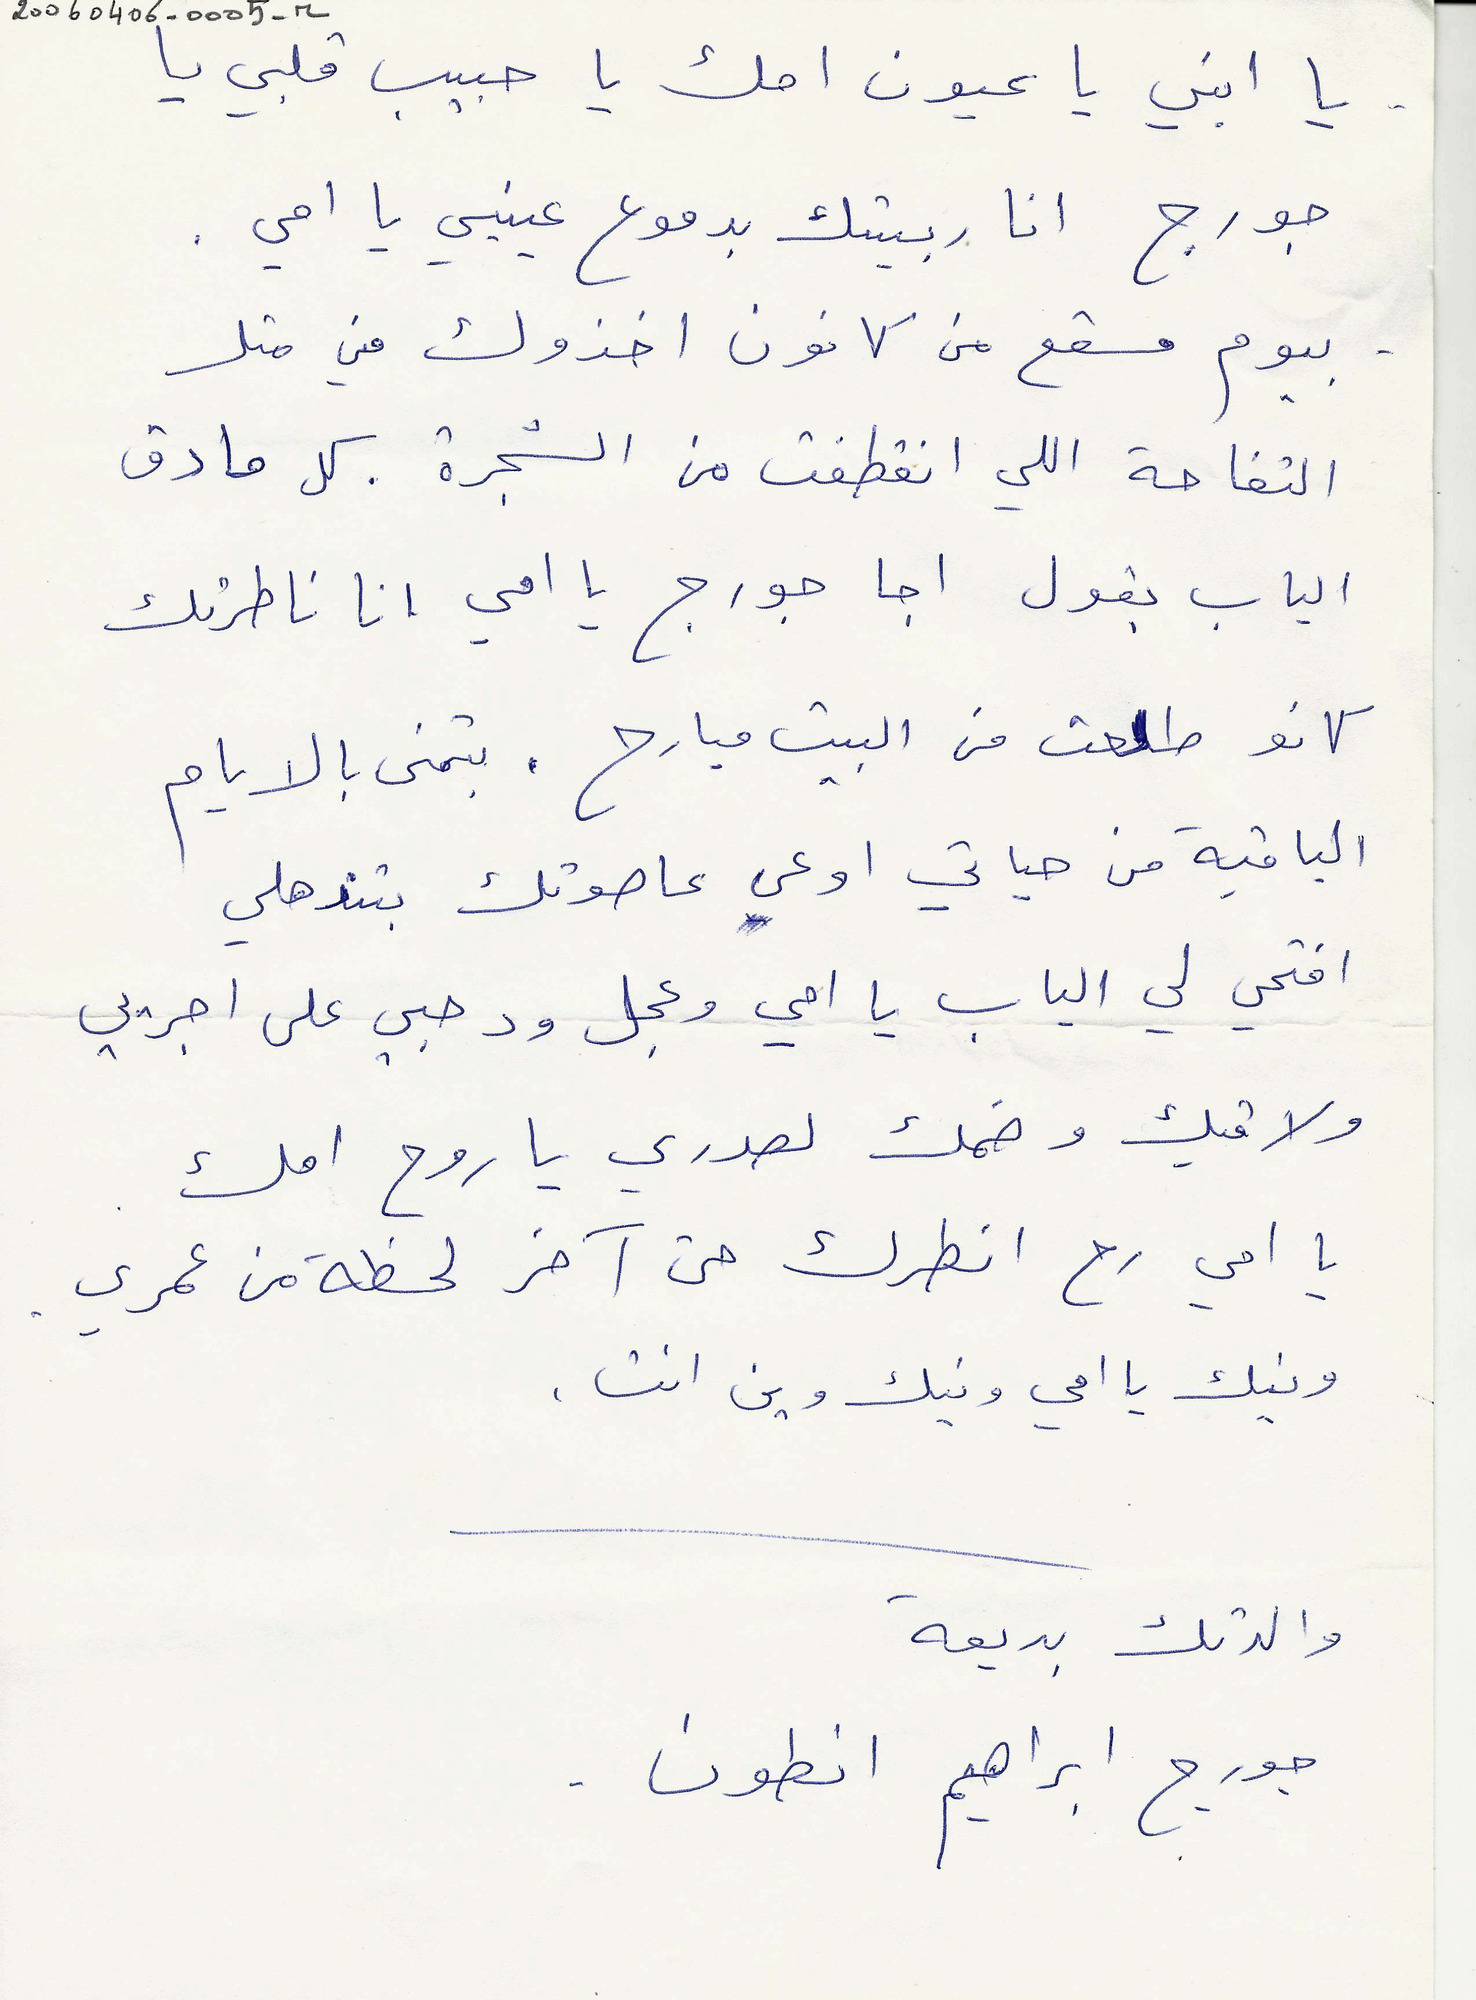 20060406-0005-r
- يا ابني يا عيون امك يا حبيب قلبي يا
جورج انا ربيتك بدموع عينيي يا امي .
- بيوم مسقع من كانون اخذوك مني متل
التفاحة اللي انقطفت من الشجرة . كل مادق
الباب بقول اجا جورج يا امي انا ناطرتك
كانو طلعت من البيت مبارح . بتمنى بالايام
الباقية من حياتي اوعى عاصوتك بتندهلي
افتحي لي الباب يا امي وعجل ودحبي على اجريي
ولاقيك وضمك لصدري يا روح امك
يا امي رح انطرك حتى آخر لحظة من عمري .
وينك يا امي وينك وين انت .
والدتك بديعة
جورج ابراهيم انطون -